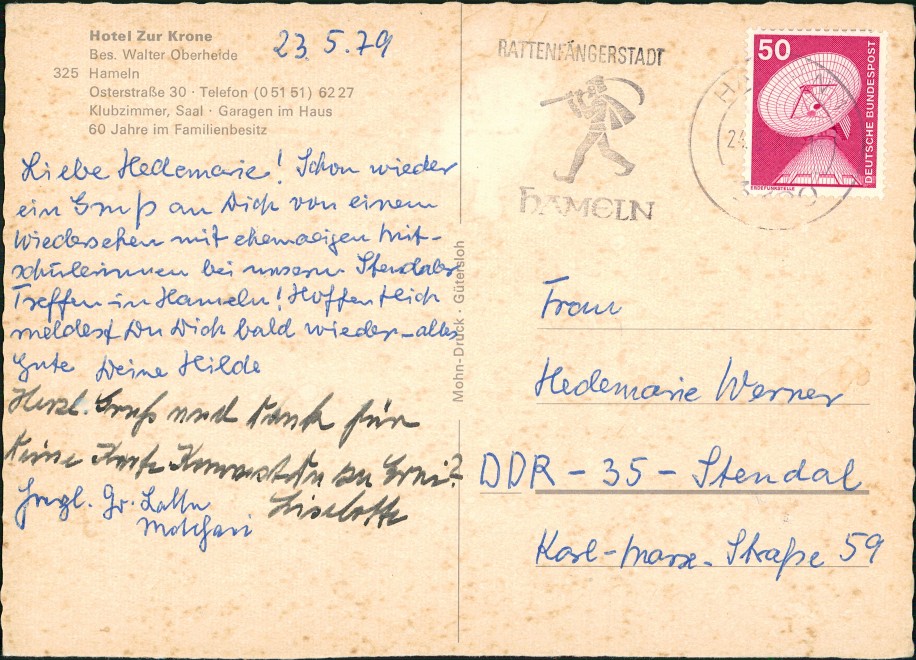 Hotel Zur Krone
Bes. Walter Oberheide
325 Hameln
Osterstraße 30 · Telefon (0 51 51) 62 27
Klubzimmer, Saal · Garagen im Haus
60 Jahre im Familienbesitz
23.5.79
Liebe Hedemarie! Schon wieder
ein Gruß an Dich von einem
Wiedersehen mit ehemaligen Mit-
schülerinnen bei unserm Stendaler
Treffen in Hameln! Hoffentlich
meldest Du Dich bald wieder – alles
Gute Deine Hilde
Herzl. Gruß und Dank für
Deine Karte Kommst Du zu
Liselotte
Gr.
Mohn-Druck · Gütersloh
RATTENFÄNGERSTADT
HAMELN
50
DEUTSCHE BUNDESPOST
ERDEFUNKSTELLE
Frau
Hedemarie Werner
DDR – 35 – Stendal
Karl-Marx-Straße 59